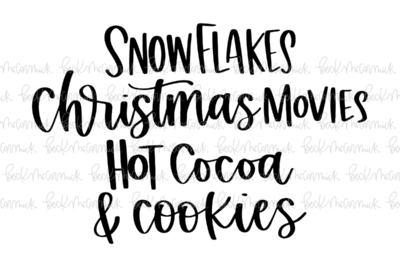 SNOWFLAKES
Christmas MOVIES
HOT Cocoa
& cookies